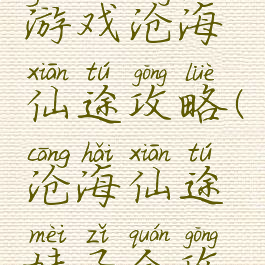 游戏沧海
xiān tú gōng lüè
仙途攻略(
cāng hǎi xiān tú
沧海仙途
mèi zǐ quán gōng
妹子全攻